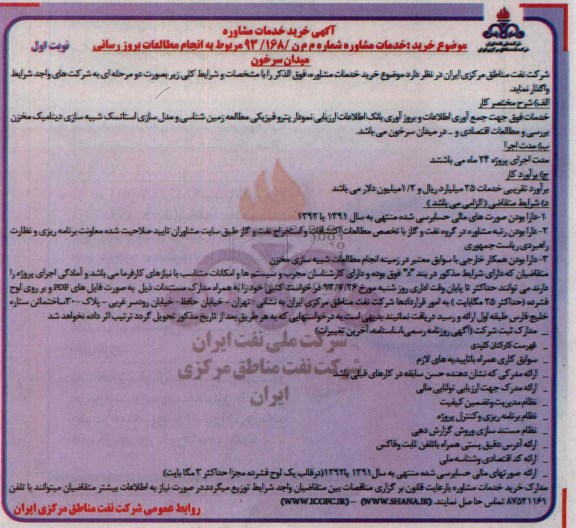 آگهی خرید خدمات مشاوره
موضوع خرید : خدمات مشاوره شماره م م ن /۱۶۸/ ۹۳ مربوط به انجام مطالعات بروز رسانی
میدان سرخون
نوبت اول
شرکت ملی نفت ایران
شرکت نفت مناطق مرکزی ایران
شرکت نفت مناطق مرکزی ایران در نظر دارد موضوع خرید خدمات مشاوره، فوق الذکر را با مشخصات و شرایط کلی زیر بصورت دو مرحله ای به شرکت های واجد شرایط
واگذار نماید.
الف) شرح مختصر کار
خدمات فوق جهت جمع آوری اطلاعات و بروز آوری بانک اطلاعات ارزیابی نمودار پتروفیزیکی مطالعه زمین شناسی و مدل سازی استاتیک شبیه سازی دینامیک مخزن
بررسی و مطالعات اقتصادی و ... در میدان سرخون می باشد.
ب) مدت اجرا
مدت اجرای پروژه ۲۴ ماه می باشند
ج) برآورد کار
برآورد تقریبی خدمات ۲۵ میلیارد ریال و ۱/۲ میلیون دلار می باشد
د) شرایط متقاضی (الزامی می باشد)
۱- دارا بودن صورت های مالی حسابرسی شده منتهی به سال ۱۳۹۱ یا ۱۳۹۲
۲- دارا بودن رتبه مشاوره در گروه نفت و گاز با تخصص مطالعات اکتشافات و استخراج نفت و گاز طبق سایت مشاوران تایید صلاحیت شده معاونت برنامه ریزی و نظارت
راهبردی ریاست جمهوری
۳- دارا بودن همکار خارجی با سوابق معتبر در زمینه انجام مطالعات شبیه سازی مخزن
متقاضیان که دارای شرایط مذکور در بند "د" فوق بوده و دارای کارشناسان مجرب و سیستم ها و امکانات متناسب با نیازهای کارفرما می باشد و آمادگی اجرای پروژه را
دارند می توانند حداکثر تا پایان وقت اداری روز شنبه مورخ ۹۳/۷/۲۶ درخواست کتبی خود را به همراه مدارک مستندات ذیل به صورت فایل های PDF و بر روی لوح
فشرده (حداکثر ۲۵ مگابایت) به امور قراردادها شرکت نفت مناطق مرکزی ایران به نشانی - تهران - خیابان حافظ - خیابان رودسر غربی - پلاک ۳۰- ساختمان ستاره
خلیج فارس طبقه اول ارائه و رسید دریافت نمایند. بدیهی است به درخواستهایی که به هر طریق بعد از تاریخ مذکور تحویل گردد ترتیب اثر داده نخواهد شد
_ مدارک ثبت شرکت (آگهی روزنامه رسمی، اساسنامه، آخرین تغییرات)
_ فهرست کارکنان کلیدی
_ سوابق کاری همراه با تاییدیه های لازم
_ ارائه مدرکی که نشان دهنده حسن سابقه در کارهای قبلی باشد
_ ارائه مدرک جهت ارزیابی توانایی مالی
_ نظام مدیریت و تضمین کیفیت
_ نظام برنامه ریزی و کنترل پروژه
_ نظام مستند سازی و روش گزارش دهی
_ ارائه آدرس دقیق پستی همراه با تلفن ثابت و فاکس
_ ارائه کد اقتصادی و شناسه ملی
_ ارائه صورتهای مالی حسابرسی شده منتهی به سال ۱۳۹۱ یا ۱۳۹۲ (در قالب یک لوح فشرده مجزا حداکثر ۳ مگا بایت)
مدارک خرید خدمات مشاوره با رعایت قانون بر گزاری مناقصات بین متقاضیان واجد شرایط توزیع میگردد. در صورت نیاز به اطلاعات بیشتر متقاضیان میتوانند با تلفن
۸۷۵۳۱۱۶۱ تماس حاصل نمایند. (WWW.SHANA.IR) - (WWW.ICOFC.IR)
روابط عمومی شرکت نفت مناطق مرکزی ایران
شرکت ملی نفت ایران
شرکت نفت مناطق مرکزی
ایران